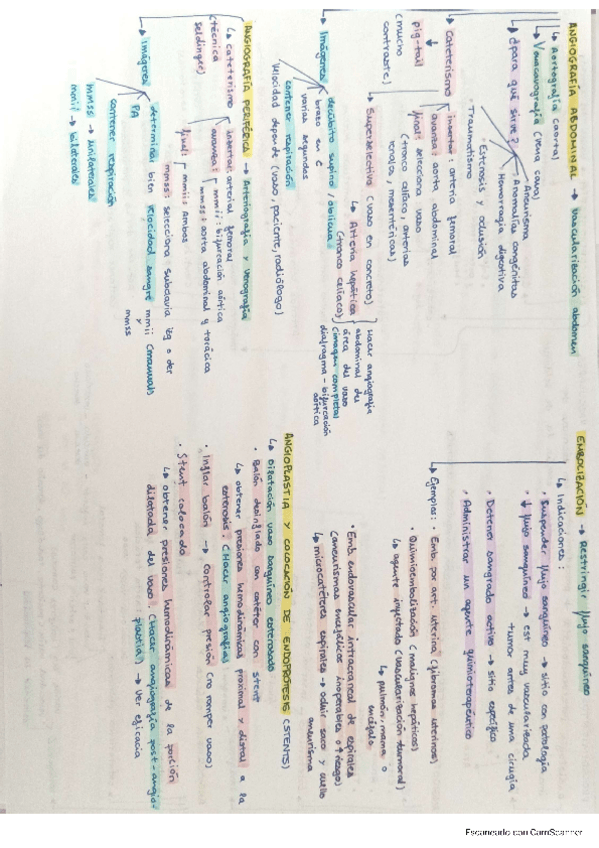 ANGIOGRAFÍA ABDOMINAL → vascularización abdomen
↳ Aortografía (aorta)
↳ Venacavografía (vena cava)
↳ ¿para qué sirve?
· Aneurisma
· Anomalías congénitas
· Hemorragia digestiva
· Estenosis y oclusión
· Traumatismo
↳ Cateterismo
↓
pig-tail
(mucho
contraste)
insertar: arteria femoral
avanza: aorta abdominal
final: selecciona vaso
(tronco celíaco, arterias
renales, mesentéricas)
↳ Superselectiva (vaso en concreto)
↳ Arteria hepática
(tronco celíaco)
Hacer angiografía
abdominal del
área del vaso
(imagen completa)
diafragma - bifurcación
aórtica
↳ Imágenes
decúbito supino / oblicua
brazo en C
varios segundos
contener respiración
Velocidad depende (vaso, paciente, radiólogo)
ANGIOGRAFÍA PERIFÉRICA → Arteriografía y venografía
↳ cateterismo
(técnica
seldinger)
insertar: arterial femoral
avanza:
mmii: bifurcación aórtica
mmss: aorta abdominal y torácica
final:
mmii: Ambos
mmss: selecciona subclavia izq o der
↳ Imágenes
determinar bien velocidad sangre mmii (manual)
y
mmss
PA
contener respiración
mmss → unilaterales
mmii → bilaterales
EMBOLIZACIÓN → Restringir flujo sanguíneo
↳ Indicaciones:
· Suspender flujo sanguíneo → sitio con patología
· ↓ flujo sanguíneo → est muy vascularizada
tumor antes de una cirugía
· Detener sangrado activo → sitio específico
· Administrar un agente quimioterapéutico
↳ Ejemplos:
· Emb. por art. uterina (fibromas uterinos)
· Quimioembolización (malignos hepáticos)
↳ agente inyectado (vascularización tumoral)
↳ pulmón, mama o
encéfalo
· Emb endovascular intracraneal de espirales
(aneurismas encefálicos inoperables o ↑ riesgo)
↳ microcatéteres espirales → ocluir saco y cuello
aneurisma
ANGIOPLASTIA Y COLOCACIÓN DE ENDOPRÓTESIS (STENTS)
↳ Dilatación vaso sanguíneo estenosado
· Balón desinflado con catéter con stent
↳ obtener presiones hemodinámicas proximal y distal a la
estenosis. (Hacer angiografías)
· Inflar balón → controlar presión (no romper vaso)
· Stent colocado
↳ obtener presiones hemodinámicas de la porción
dilatada del vaso. (Hacer angiografía post-angio-
plastia) → ver eficacia
Escaneado con CamScanner